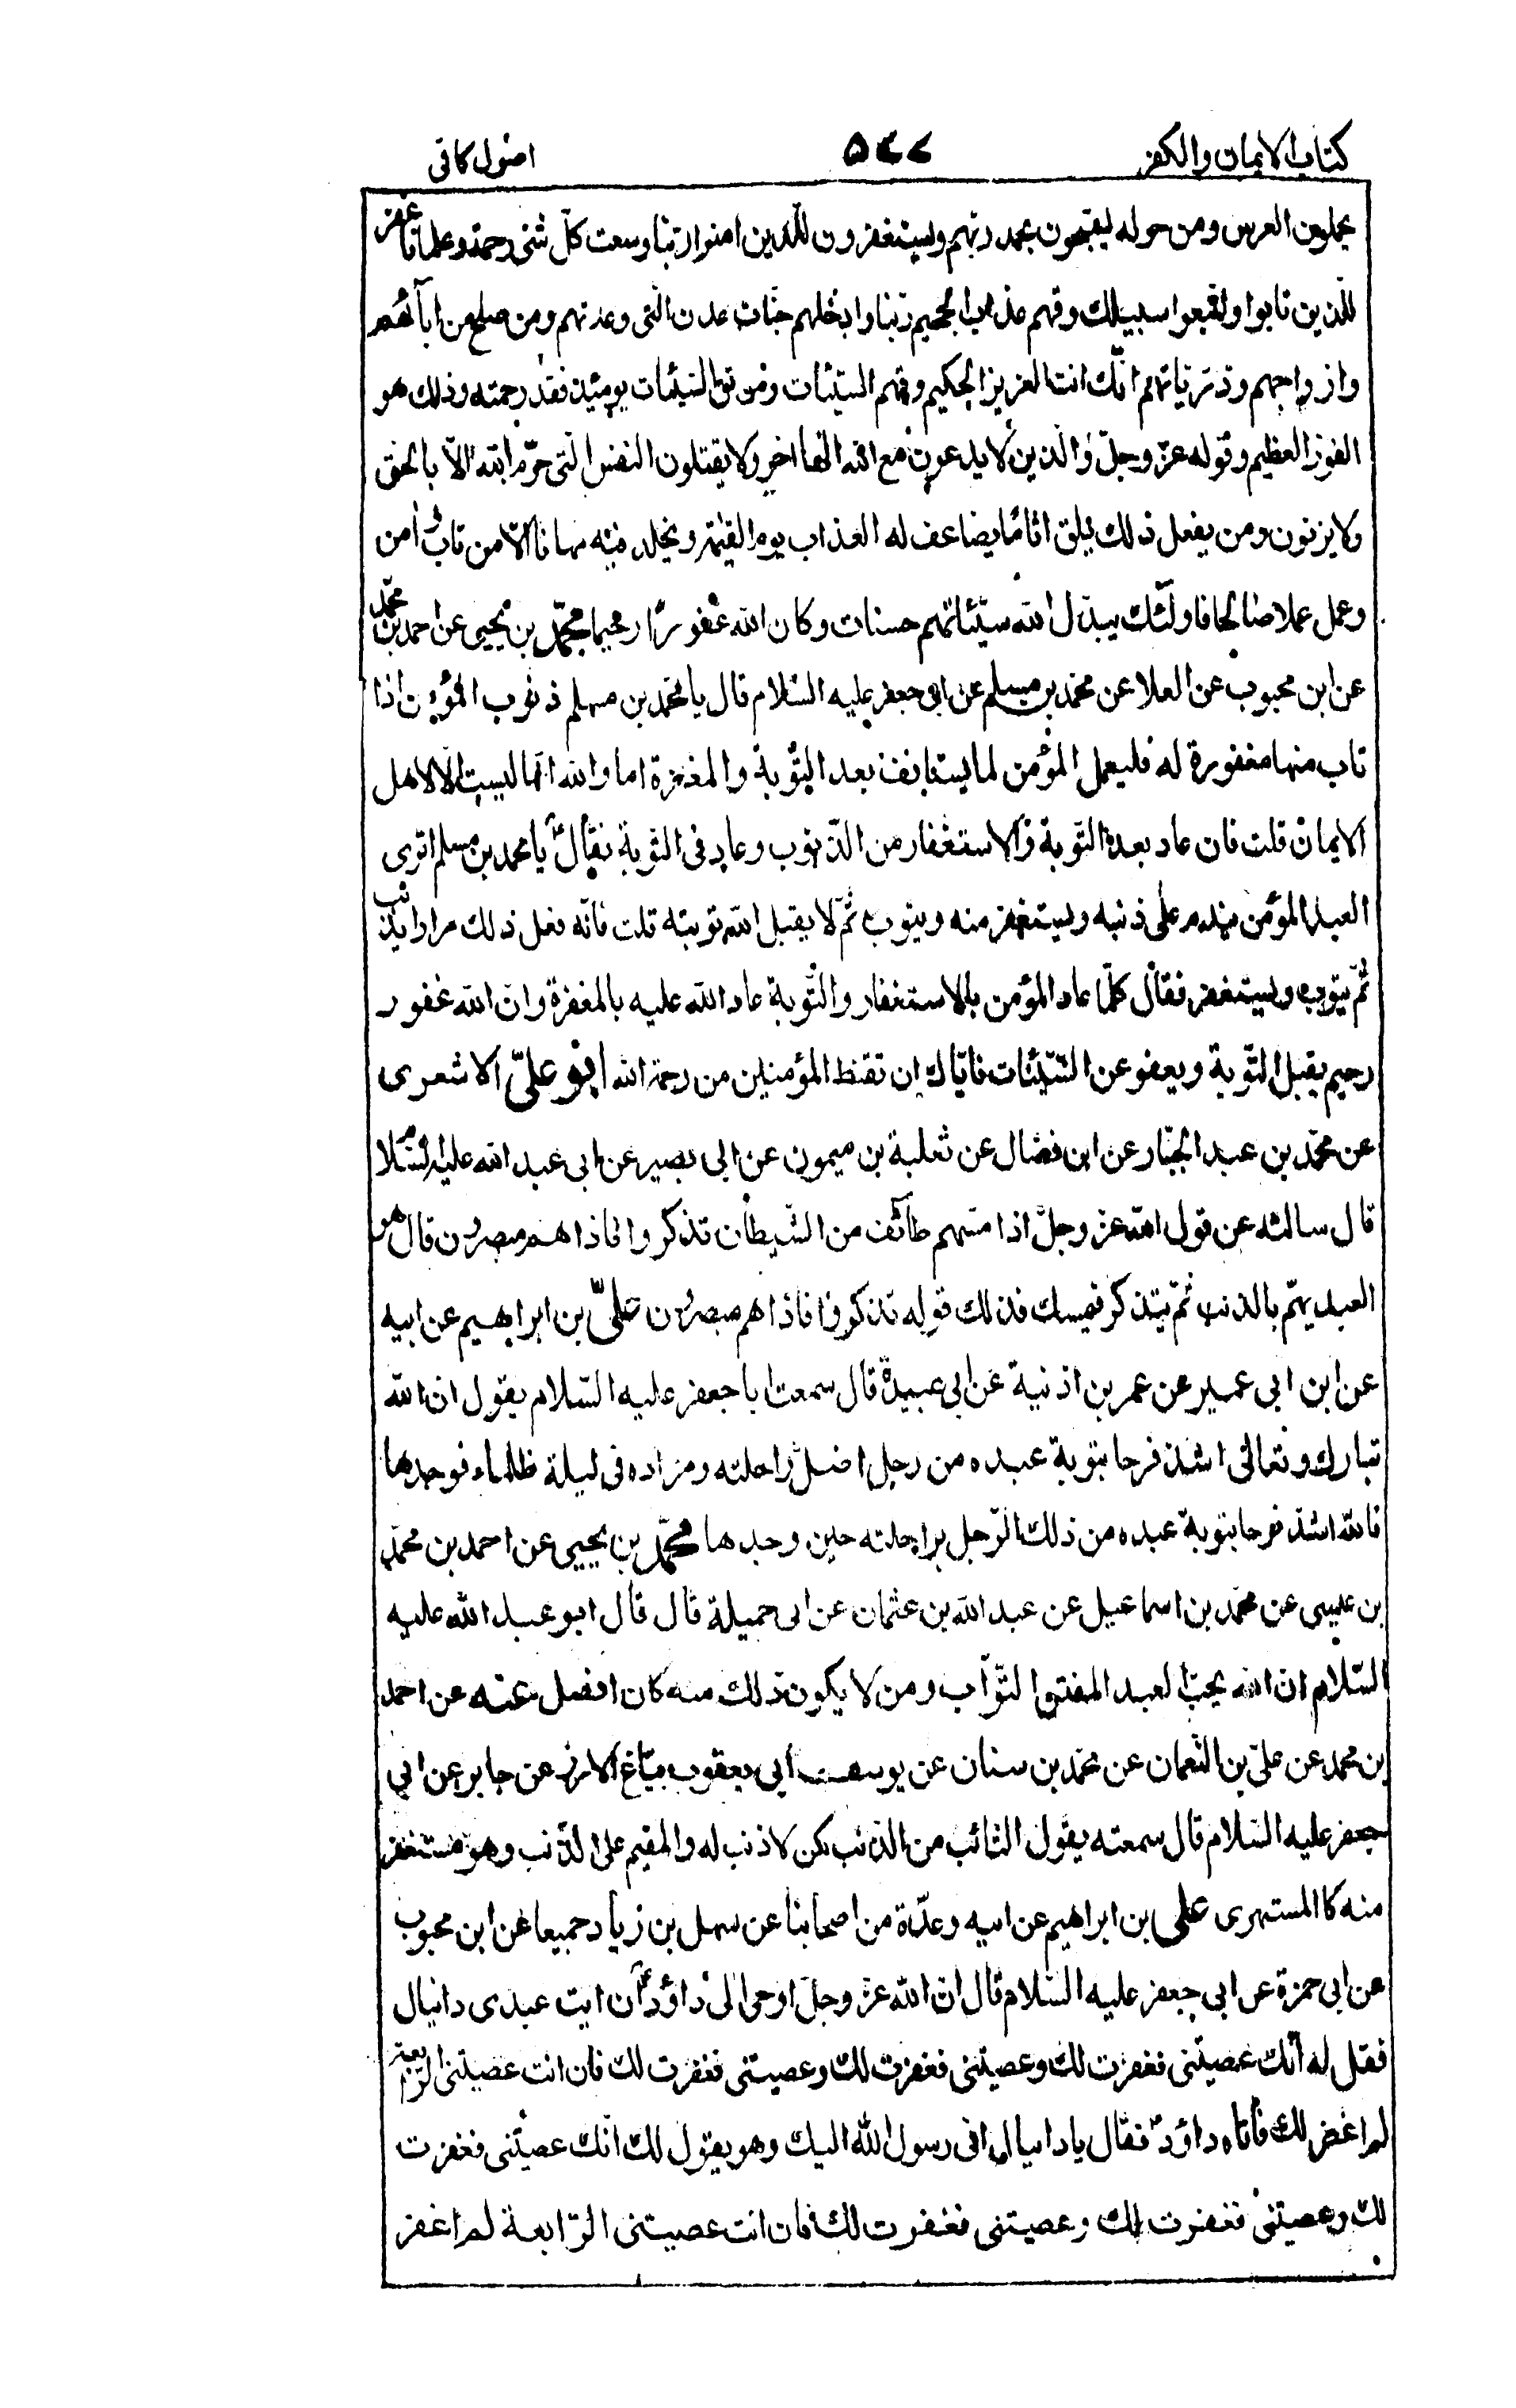 كتاب الايمان والكفر ۵۴۷ اصول كافى
يحملون العرش ومن حوله يسبحون بحمد ربهم ويستغفرون للذين امنوا ربّنا وسعت كلّ شئ رحمة وعلما فاغفر
للّذين تابوا واتّبعوا سبيلك وقهم عذاب الجحيم ربّنا وادخلهم جنّات عدن الّتى وعدتهم ومن صلح من ابآئهم
وازواجهم وذرّيّاتهم انّك انت العزيز الحكيم وقهم السّيّئات ومن تق السّيّئات يومئذ فقد رحمته وذلك هو
الفوز العظيم وقوله عزّ وجلّ والّذين لا يدعون مع الله الها اخر ولا يقتلون النفس الّتى حرّم الله الّا بالحقّ
ولا يزنون ومن يفعل ذلك يلق اثامًا يضاعف له العذاب يوم القيمة ويخلد فيه مهانا الّا من تاب وامن
وعمل عملا صالحا فاولئك يبدّل الله سيّئاتهم حسنات وكان الله غفورًا رحيما محمّد بن يحيى عن احمد بن محمّد
عن ابن محبوب عن العلا عن محمّد بن مسلم عن ابى جعفر عليه السّلام قال يا محمّد بن مسلم ذنوب المؤمن اذا
تاب منها مغفورة له فليعمل المؤمن لما يستانف بعد التّوبة والمغفرة اما والله انّها ليست الّا لاهل
الايمان قلت فان عاد بعد التّوبة والاستغفار من الذّنوب وعاد فى التّوبة فقال يا محمد بن مسلم اترى
العبد المؤمن يندم على ذنبه ويستغفر منه ويتوب ثمّ لا يقبل الله توبته قلت فانّه فعل ذلك مرارا يذنب
ثمّ يتوب ويستغفر فقال كلّما عاد المؤمن بالاستغفار والتّوبة عاد الله عليه بالمغفرة وانّ الله غفور
رحيم يقبل التّوبة ويعفو عن السّيّئات فايّاك ان تقنط المؤمنين من رحمة الله ابو علىّ الاشعرى
عن محمّد بن عبد الجبّار عن ابن فضّال عن ثعلبة بن ميمون عن ابى بصير عن ابى عبد الله عليه السّلام
قال سالته عن قول الله عزّ وجلّ اذا مسّهم طآئف من الشّيطان تذكروا فاذا هم مبصرون قال هو
العبد يهمّ بالذنب ثمّ يتذكر فيمسك فذلك قوله تذكروا فاذا هم مبصرون علىّ بن ابراهيم عن ابيه
عن ابن ابى عمير عن عمر بن اذنية عن ابى عبيدة قال سمعت ابا جعفر عليه السّلام يقول انّ الله
تبارك وتعالى اشدّ فرحا بتوبة عبده من رجل اضلّ راحلته ومزاده فى ليلة ظلماء فوجدها
فالله اشدّ فرحا بتوبة عبده من ذلك الرّجل براحلته حين وجدها محمّد بن يحيى عن احمد بن محمّد
بن عيسى عن محمّد بن اسماعيل عن عبد الله بن عثمان عن ابى جميلة قال قال ابو عبد الله عليه
السّلام ان الله يحبّ العبد المفتن التّوّاب ومن لا يكون ذلك منه كان افضل عنه عن احمد
بن محمد عن علىّ بن النّعمان عن محمّد بن سنان عن يوسف ابى يعقوب بيّاع الارز عن جابر عن ابى
جعفر عليه السّلام قال سمعته يقول التّائب من الذّنب كمن لا ذنب له والمقيم على الذّنب وهو مستغفر
منه كا المستهزى على بن ابراهيم عن ابيه وعدّة من اصحابنا عن سهل بن زياد جميعا عن ابن محبوب
عن ابى حمزة عن ابى جعفر عليه السّلام قال انّ الله عزّ وجلّ اوحى الى داود ان ايت عبدى دانيال
فقل له انّك عصيتنى فغفرت لك وعصيتنى فغفرت لك وعصيتنى فغفرت لك فان انت عصيتنى الرّابعة
لم اغفر لك فاتاه داود فقال يا دانيال انى رسول الله اليك وهو يقول لك انّك عصيتنى فغفرت
لك وعصيتنى فغفرت لك وعصيتنى فغفرت لك فان انت عصيتنى الرّابعة لم اغفر